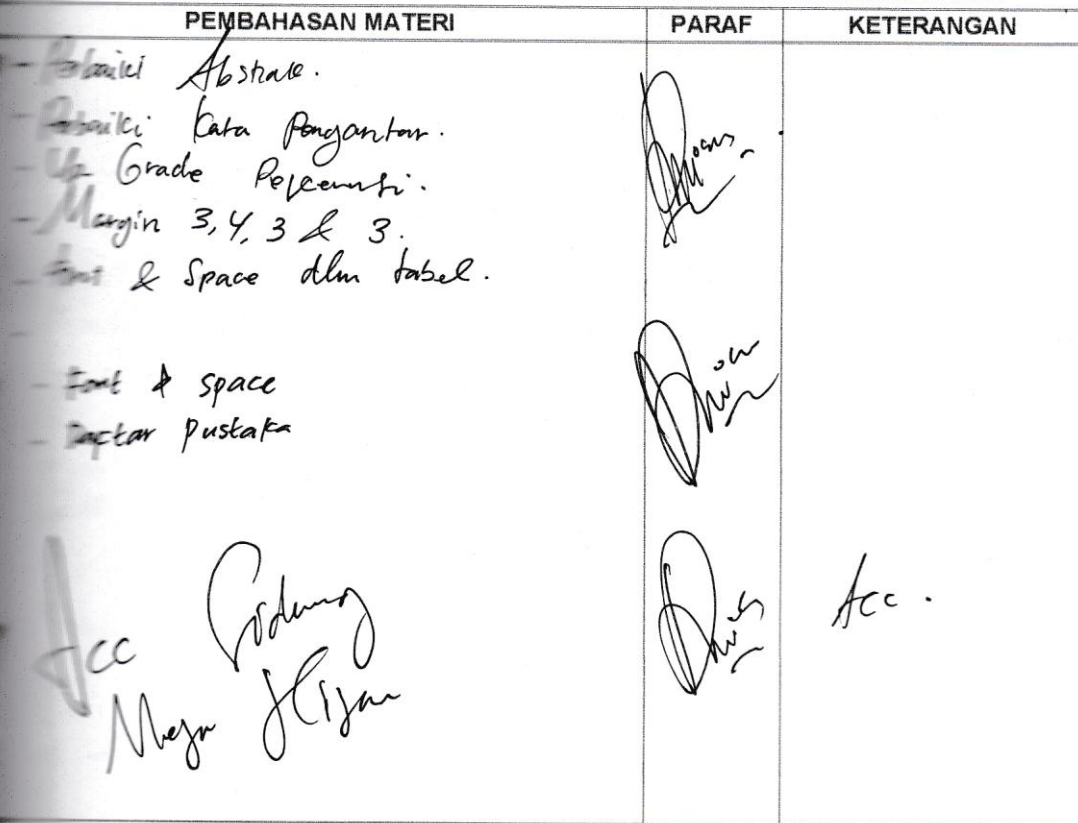 PEMBAHASAN MATERI PARAF KETERANGAN
- Perbaiki Abstrak.
- Perbaiki Kata Pengantar.
- Up Grade
- Margin 3, 4, 3 & 3.
- Font & Space dlm tabel.
- Font & space
- Daftar Pustaka
Acc Sidang Acc.
Meja Hijau